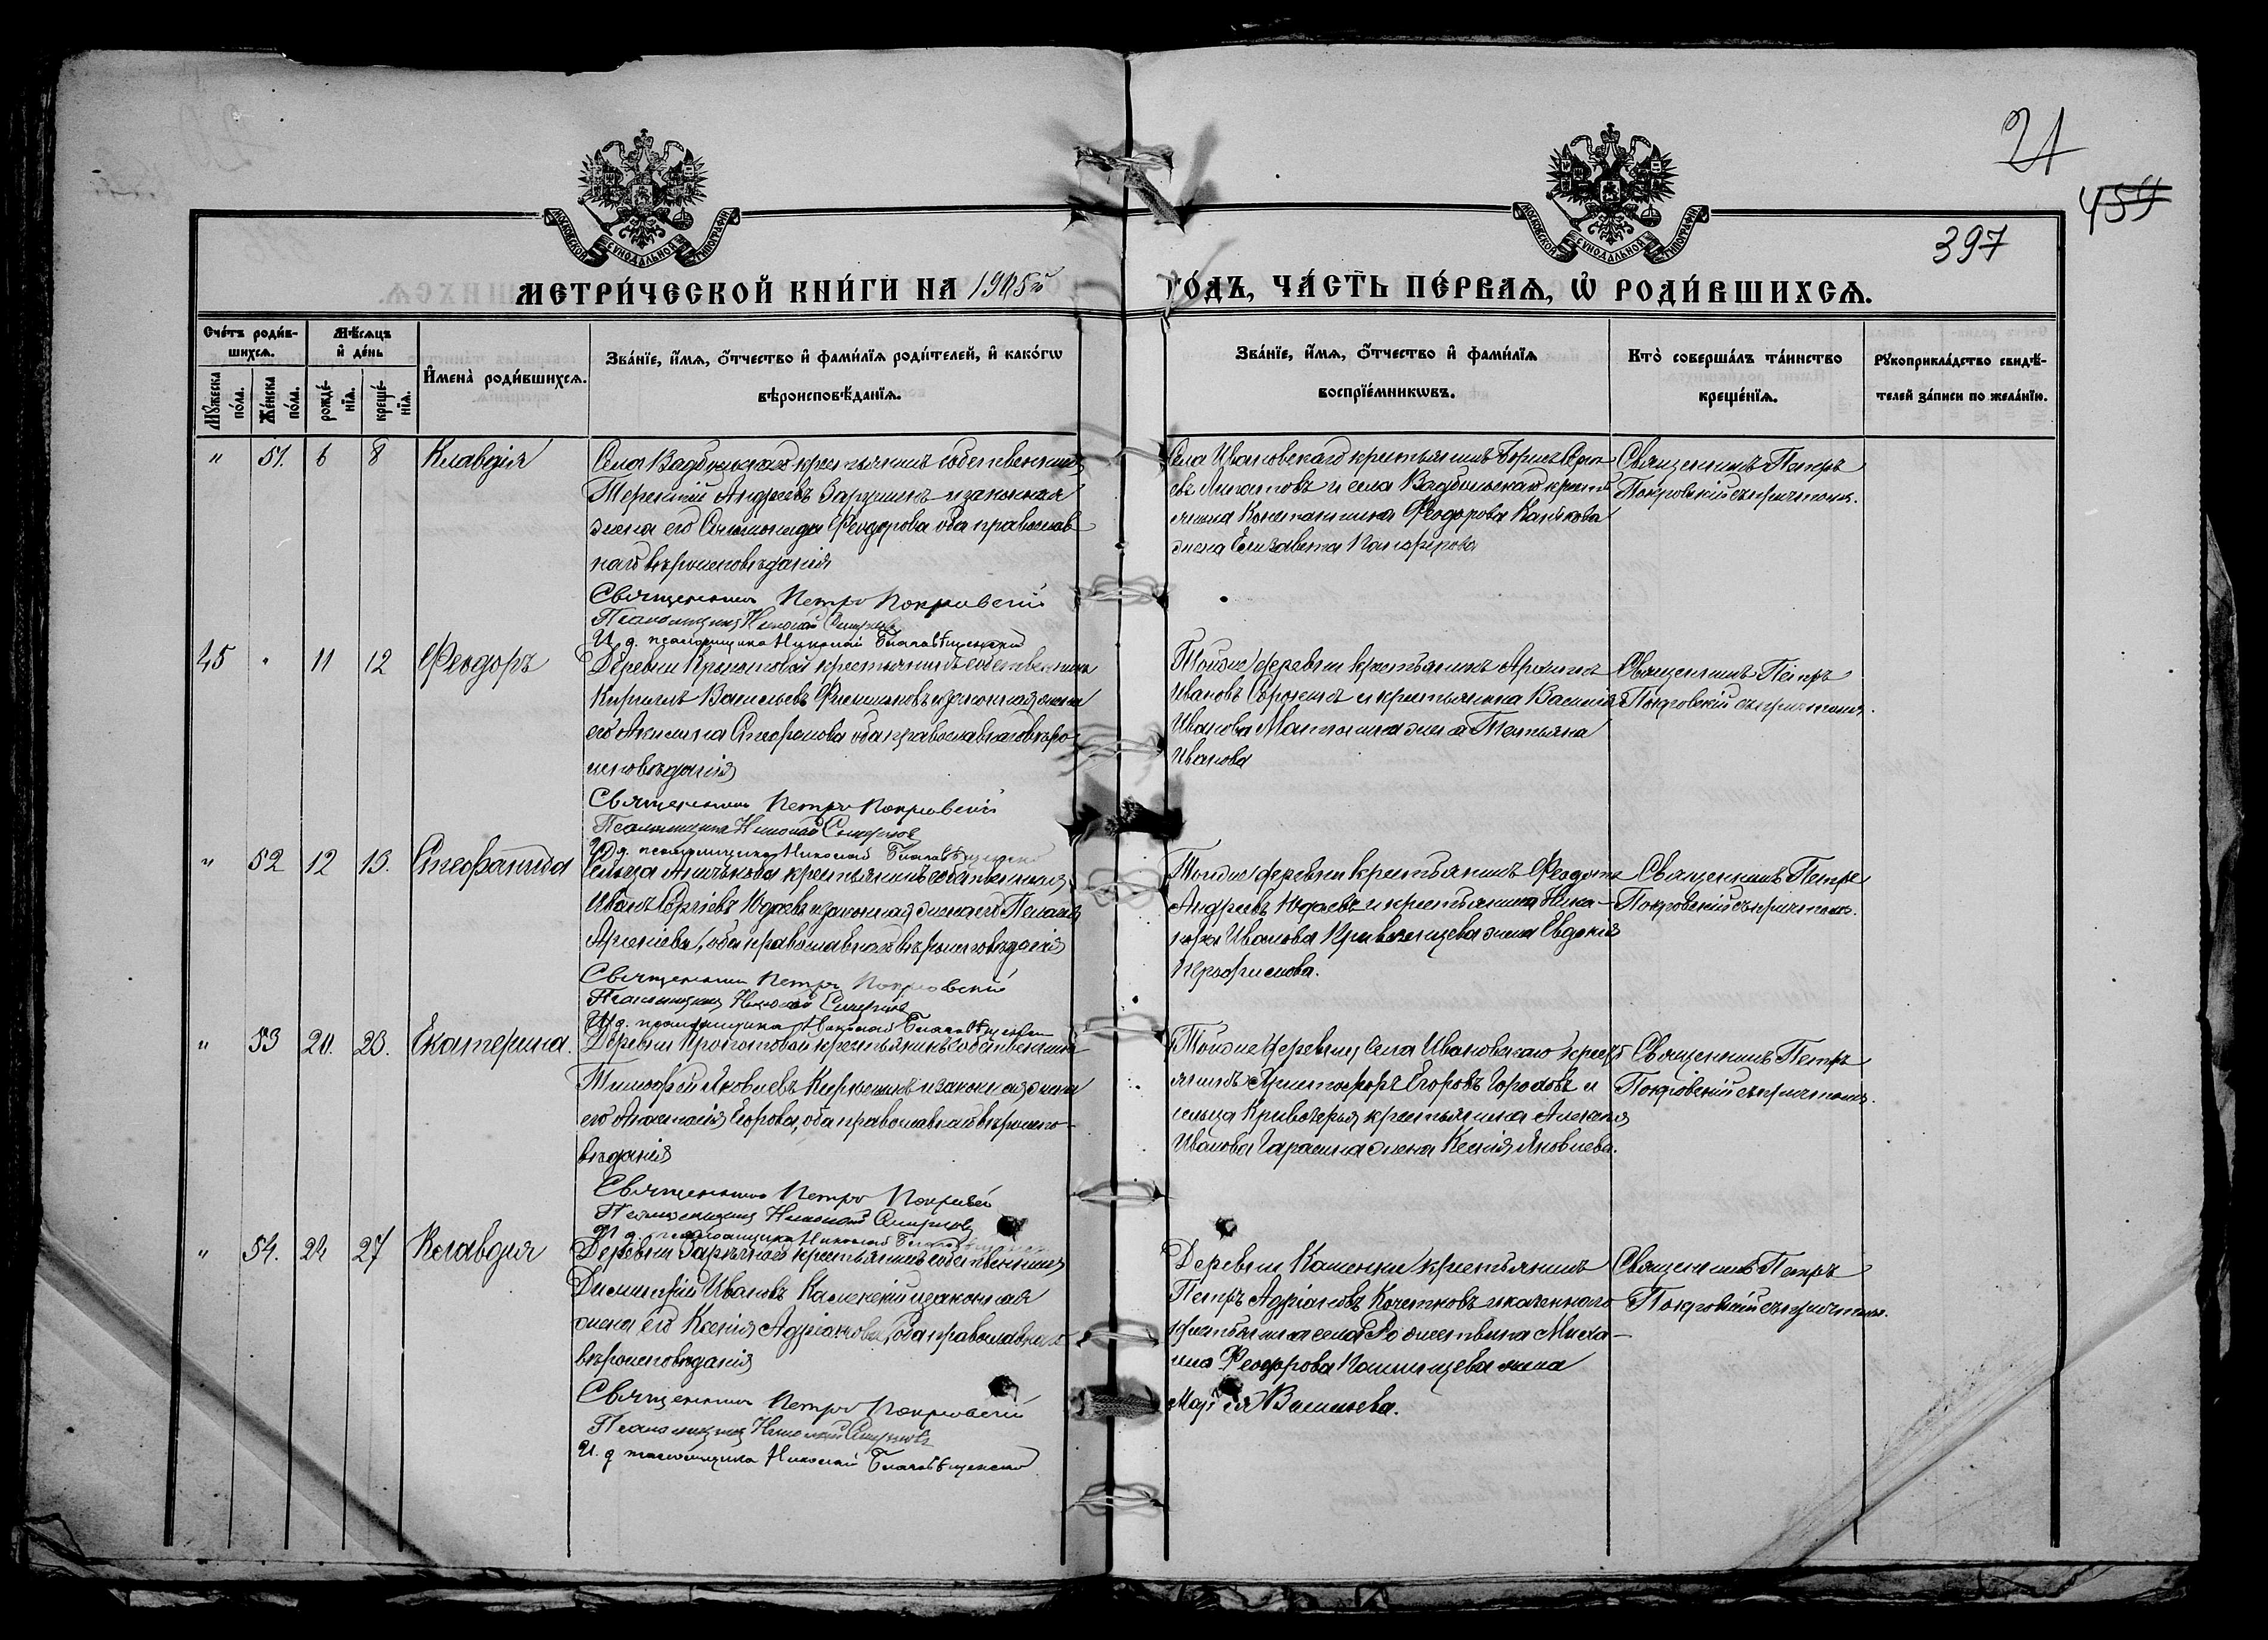 21
459
397
МОСКОВСКОЙ СѴНОДАЛЬНОЙ ТИПОГРАФІИ
МОСКОВСКОЙ СѴНОДАЛЬНОЙ ТИПОГРАФІИ
МЕТРИ́ЧЕСКОЙ КНИ́ГИ НА 1905й ГО́ДЪ, ЧА́СТЬ ПЕ́РВАѦ, Ѡ҆ РОДИ́ВШИХСѦ.
Сче́тъ роди́в-
шихсѧ.
Мѣ́сѧцъ
и҆ де́нь
Мꙋ́жеска по́ла.
Же́нска по́ла.
рожде́-
нїѧ.
креще́-
нїѧ.
И҆мена̀ роди́вшихсѧ.
Зва́нїе, и҆́мѧ, ѻ҆́тчество и҆ фами́лїѧ роди́телей, и҆ како́гѡ
вѣроисповѣ́данїѧ.
Зва́нїе, и҆́мѧ, ѻ҆́тчество и҆ фами́лїѧ
воспрїе́мникѡвъ.
Кто̀ соверша́лъ та́инство
креще́нїѧ.
Рꙋкоприкла́дство свидѣ́-
телей за́писи по жела́нїю.
" 51. 6 8 Клавдія
крестьянинъ собственникъ
Терентій Андреевъ и законная
жена его Ѳеодорова оба православ
наго вѣроисповѣданія
Священникъ Петръ Покровскій
Псаломщикъ Николай Смирновъ
И. д. псаломщика Николай Благовѣщенскій
Села Ивановскаго крестьянинъ Борисъ
евъ и села крестъ
янина Константина Ѳеодорова
жена Елизавета
Священникъ Петръ
Покровскій съ причтомъ.
45 " 11 12 Ѳеодоръ
Деревни крестьянинъ собственникъ
Кириллъ Васильевъ и законная жена
его Акилина Стефанова оба православнаго вѣро
исповѣданія
Священникъ Петръ Покровскій
Псаломщикъ Николай Смирновъ
И. д. псаломщика Николай Благовѣщенскій
Тойже деревни крестьянинъ
Ивановъ Сорокинъ и крестьянина Василія
Иванова жена Татьяна
Иванова
Священникъ Петръ
Покровскій съ причтомъ.
" 52 12 13. Стефанида
Сельца крестьянинъ собственникъ
Иванъ Сергіевъ Юдаевъ и законная жена его Пелагія
оба православнаго вѣроисповѣданія
Священникъ Петръ Покровскій
Псаломщикъ Николай Смирновъ
И. д. псаломщика Николай Благовѣщенскій
Тойже деревни крестьянинъ Ѳеодотъ
Андреевъ Юдаевъ и крестьянина Ника-
Иванова жена Евдокія
Священникъ Петръ
Покровскій съ причтомъ.
" 53 20. 23. Екатерина.
Деревни крестьянинъ собственникъ
Тимофей Яковлевъ и законная жена
его Анастасія Егорова, оба православнаго вѣроиспо-
вѣданія
Священникъ Петръ Покровскій
Псаломщикъ Николай Смирновъ
И. д. псаломщика Николай Благовѣщенскій
Тойже деревни, села Ивановскаго крест
янинъ Христофоръ Егоровъ и
сельца крестьянина Алексія
Иванова Гарасина жена Ксенія Яковлева.
Священникъ Петръ
Покровскій съ причтомъ.
" 54. 24 27 Клавдія
Деревни крестьянинъ собственникъ
Димитрій Ивановъ Каменскій и законная
жена его Ксенія Адріанова, оба православнаго
вѣроисповѣданія
Священникъ Петръ Покровскій
Псаломщикъ Николай Смирновъ
И. д. псаломщика Николай Благовѣщенскій
Деревни Каменки крестьянинъ
Петръ Адріановъ Кочетковъ и
крестьянина села Рождествина Миха-
ила Ѳеодорова жена
Марія Васильева.
Священникъ Петръ
Покровскій съ причтомъ.